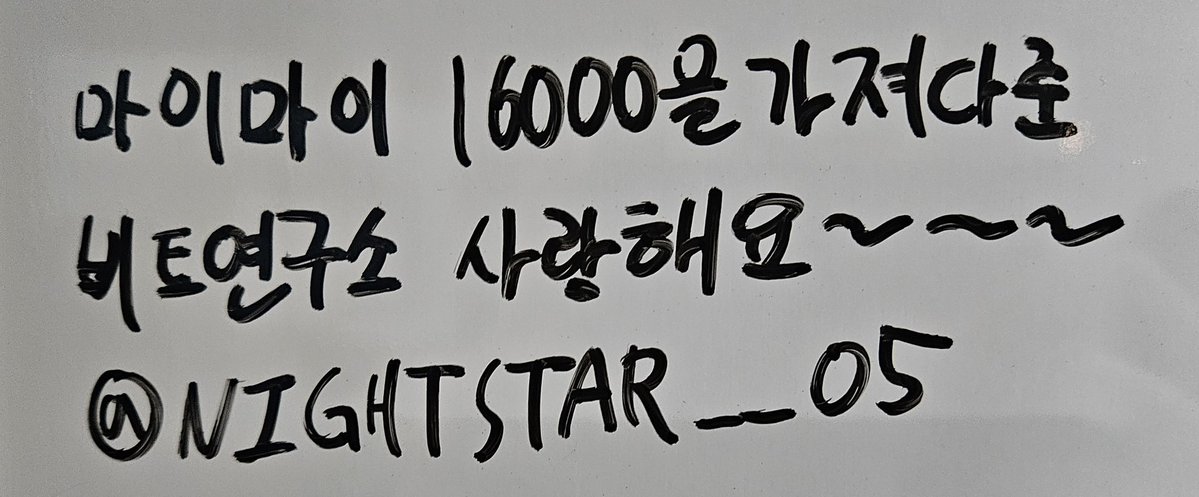 마이마이 16000을가져다준
비트연구소 사랑해요~~~
@NIGHTSTAR__05